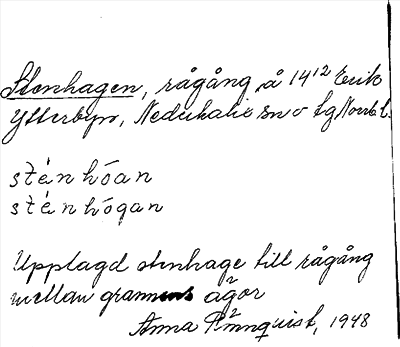 Stenhagen, rågång å 14¹² Erik
Ytterbyn, Nederkalix sn o lg Norrb l.
stén hóan
stén hógan
Upplagd stenhage till rågång
mellan grannens ägor
Anna Rönnquist, 1948